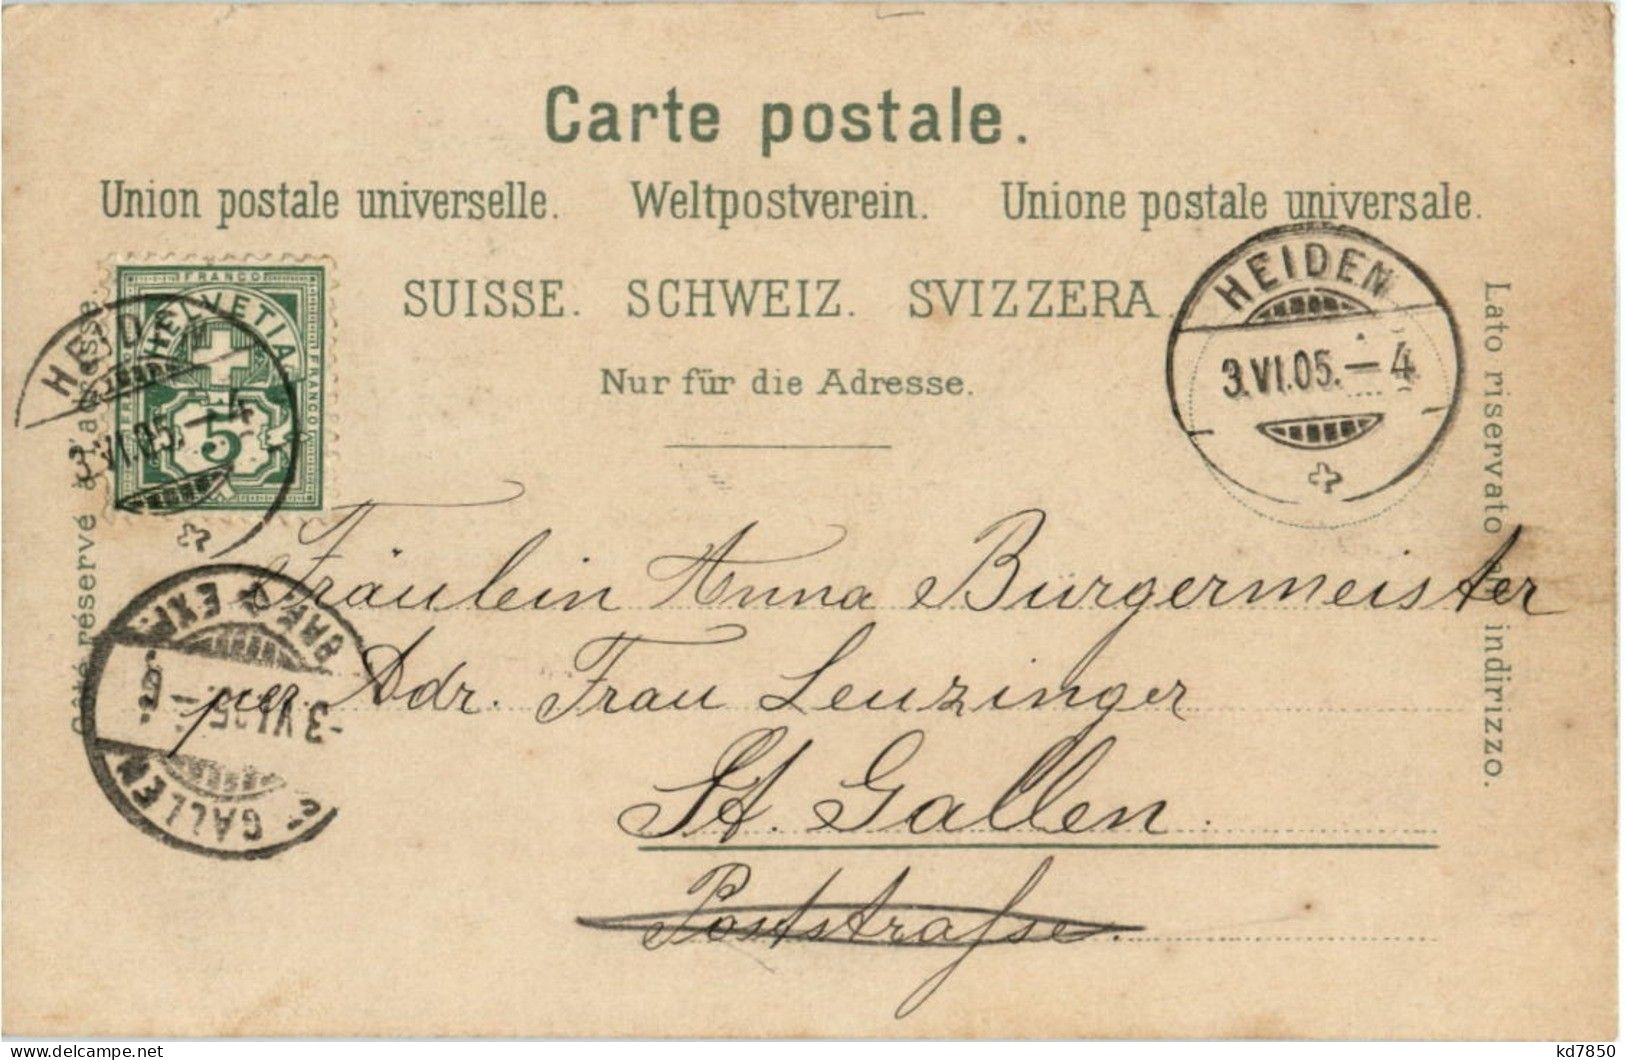 Carte postale.
Union postale universelle. Weltpostverein. Unione postale universale.
SUISSE. SCHWEIZ. SVIZZERA.
Nur für die Adresse.
Côté réservé à l'adresse.
Lato riservato indirizzo.
FRANCO
HELVETIA
FRANCO
5
HEID
3.VI.05.-4
HEIDEN
3.VI.05.-4
ST. GALLEN
-3.VI.05.
BRF. EXP.
Fräulein Anna Burgermeister
per Adr. Frau Leuzinger
St. Gallen.
Poststraße.
kd7850